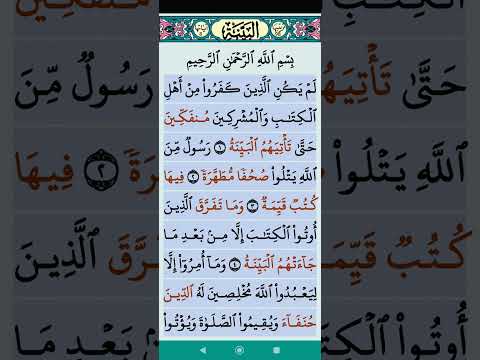 البينة
بِسْمِ ٱللَّهِ ٱلرَّحْمَٰنِ ٱلرَّحِيمِ
لَمْ يَكُنِ ٱلَّذِينَ كَفَرُوا۟ مِنْ أَهْلِ
ٱلْكِتَٰبِ وَٱلْمُشْرِكِينَ مُنفَكِّينَ
حَتَّىٰ تَأْتِيَهُمُ ٱلْبَيِّنَةُ ١ رَسُولٌ مِّنَ
ٱللَّهِ يَتْلُوا۟ صُحُفًا مُّطَهَّرَةً ٢ فِيهَا
كُتُبٌ قَيِّمَةٌ ٣ وَمَا تَفَرَّقَ ٱلَّذِينَ
أُوتُوا۟ ٱلْكِتَٰبَ إِلَّا مِنۢ بَعْدِ مَا
جَآءَتْهُمُ ٱلْبَيِّنَةُ ٤ وَمَآ أُمِرُوٓا۟ إِلَّا
لِيَعْبُدُوا۟ ٱللَّهَ مُخْلِصِينَ لَهُ ٱلدِّينَ
حُنَفَآءَ وَيُقِيمُوا۟ ٱلصَّلَوٰةَ وَيُؤْتُوا۟